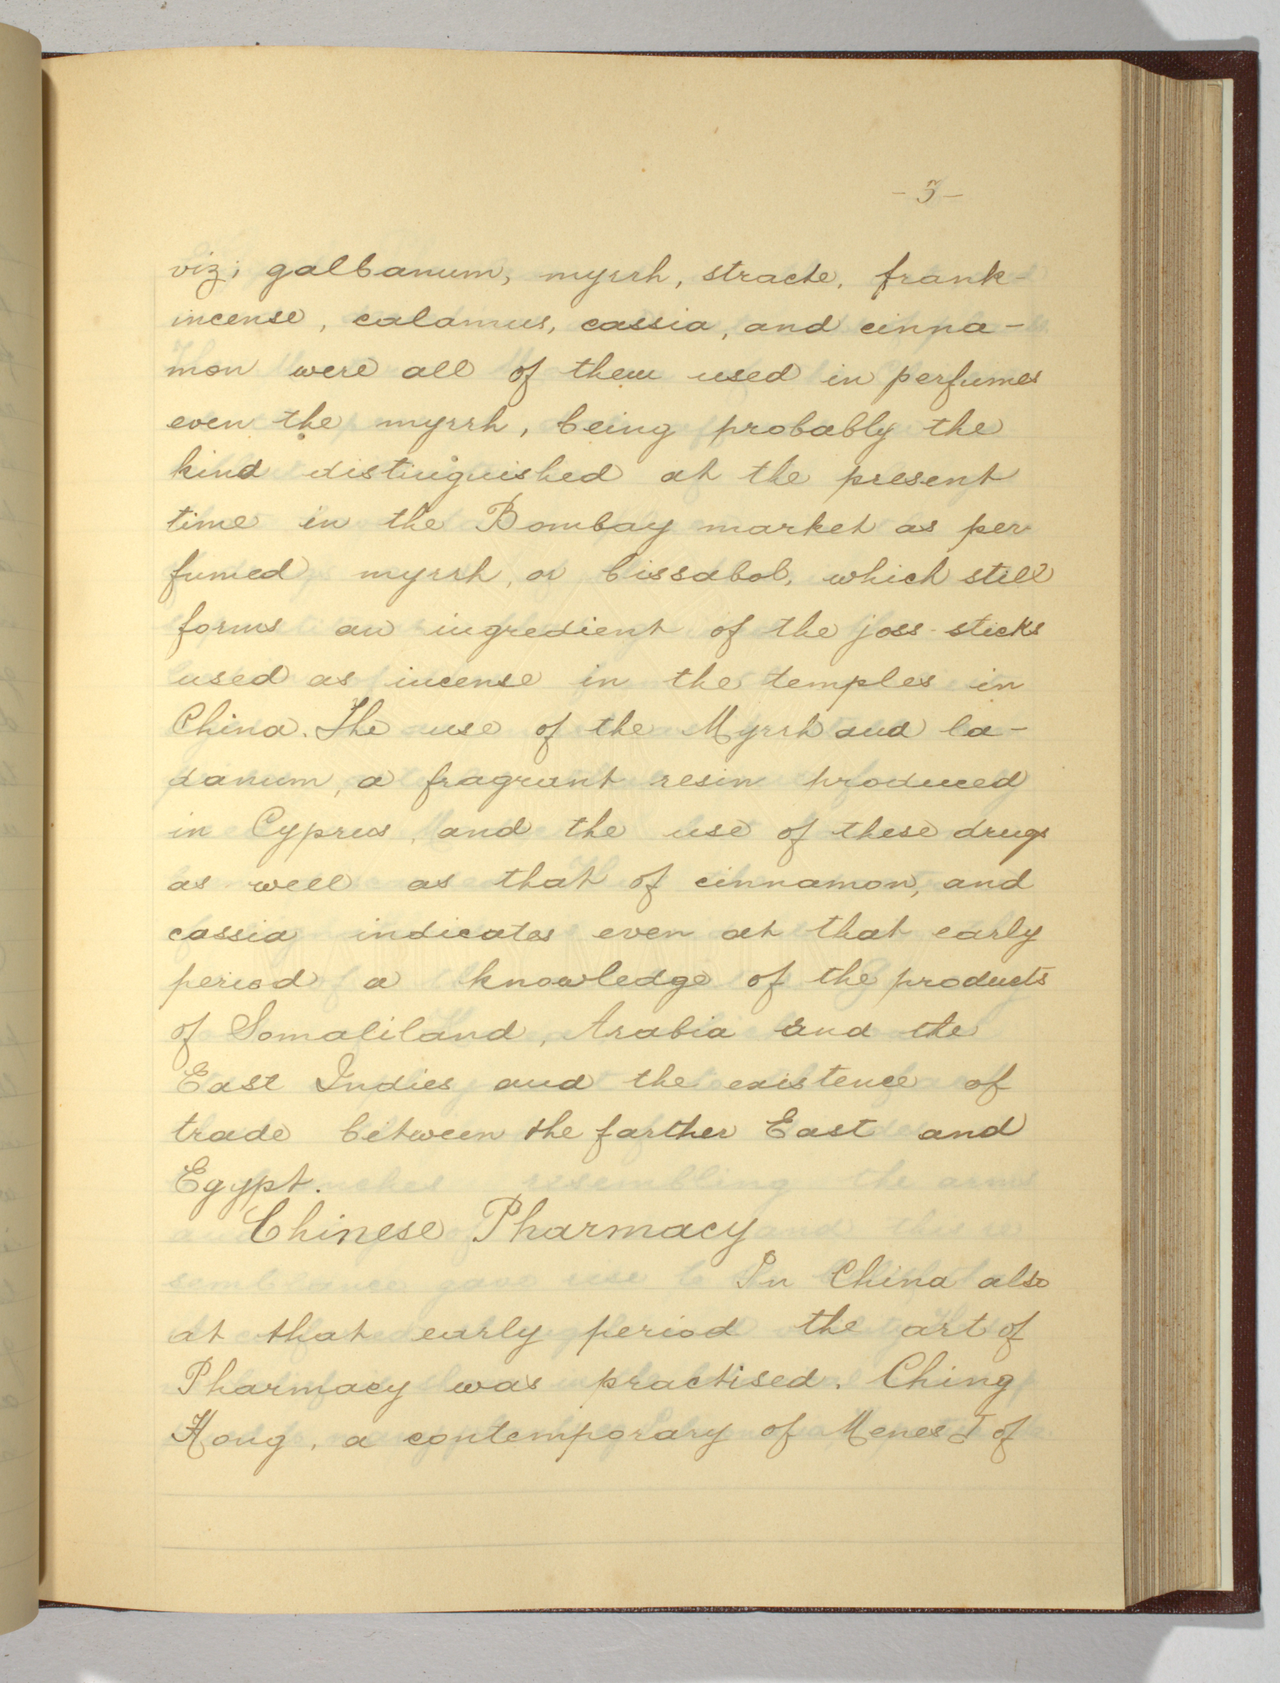 - 5 -
viz; galbanum, myrrh, stracte, frank-
incense, calamus, cassia, and cinna-
mon were all of them used in perfumes
even the myrrh, being probably the
kind distinguished at the present
time in the Bombay market as per
fumed myrrh, or bissabol, which still
forms an ingredient of the joss-sticks
used as incense in the temples in
China. The use of the Myrrh and la-
danum, a fragrant resin produced
in Cyprus, and the use of these drugs
as well as that of cinnamon, and
cassia indicates even at that early
period a knowledge of the products
of Somaliland, Arabia and the
East Indies and the existence of
trade between the farther East and
Egypt.
Chinese Pharmacy
In China also
at that early period the art of
Pharmacy was practised. Ching
Hong, a contemporary of Menes I of